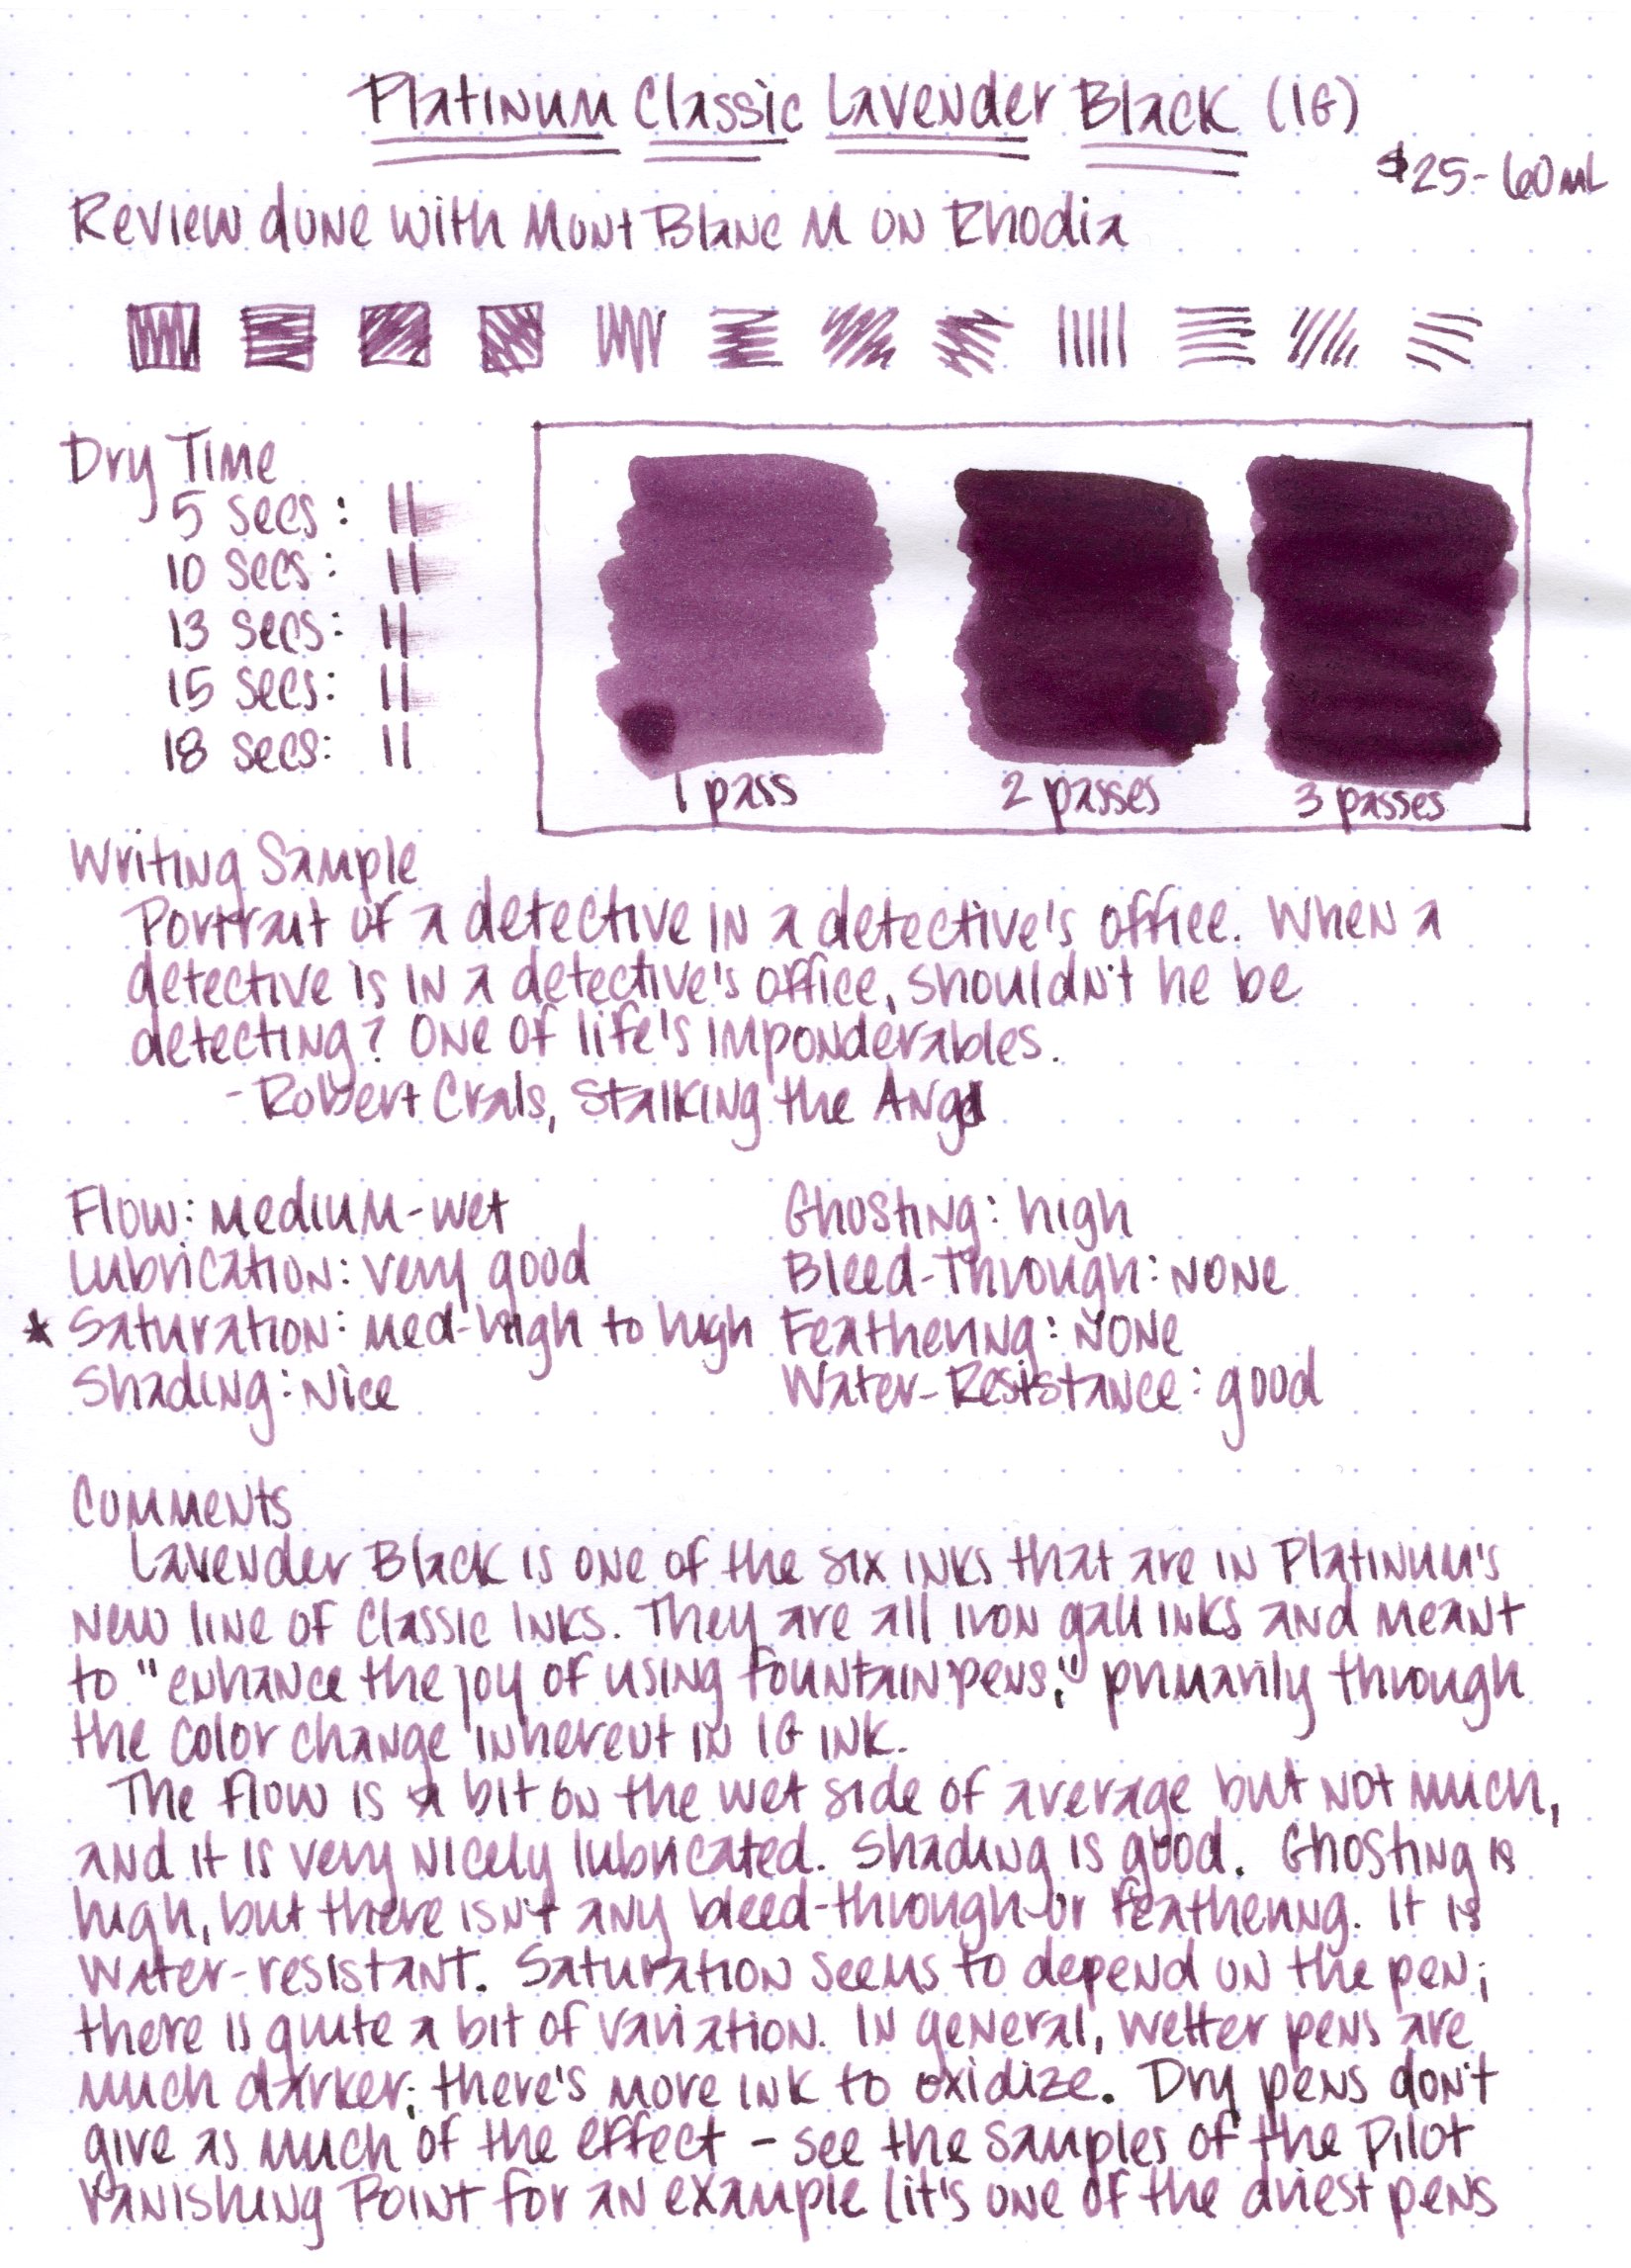 Platinum Classic Lavender Black (IG)
$25-60mL
Review done with Mont Blanc M on Rhodia
Dry Time
5 secs:
10 secs:
13 secs:
15 secs:
18 secs:
1 pass
2 passes
3 passes
Writing Sample
Portrait of a detective in a detective's office. When a
detective is in a detective's office, shouldn't he be
detecting? One of life's imponderables.
- Robert Crais, Stalking the Angel
Flow: medium-wet
Lubrication: very good
* Saturation: med-high to high
Shading: nice
Ghosting: high
Bleed-Through: none
Feathering: none
Water-Resistance: good
Comments
Lavender Black is one of the six inks that are in Platinum's
new line of Classic Inks. They are all iron gall inks and meant
to "enhance the joy of using fountain pens," primarily through
the color change inherent in IG ink.
The flow is a bit on the wet side of average but not much,
and it is very nicely lubricated. Shading is good. Ghosting is
high, but there isn't any bleed-through or feathering. It is
water-resistant. Saturation seems to depend on the pen;
there is quite a bit of variation. In general, wetter pens are
much darker; there's more ink to oxidize. Dry pens don't
give as much of the effect - see the samples of the Pilot
Vanishing Point for an example (it's one of the driest pens